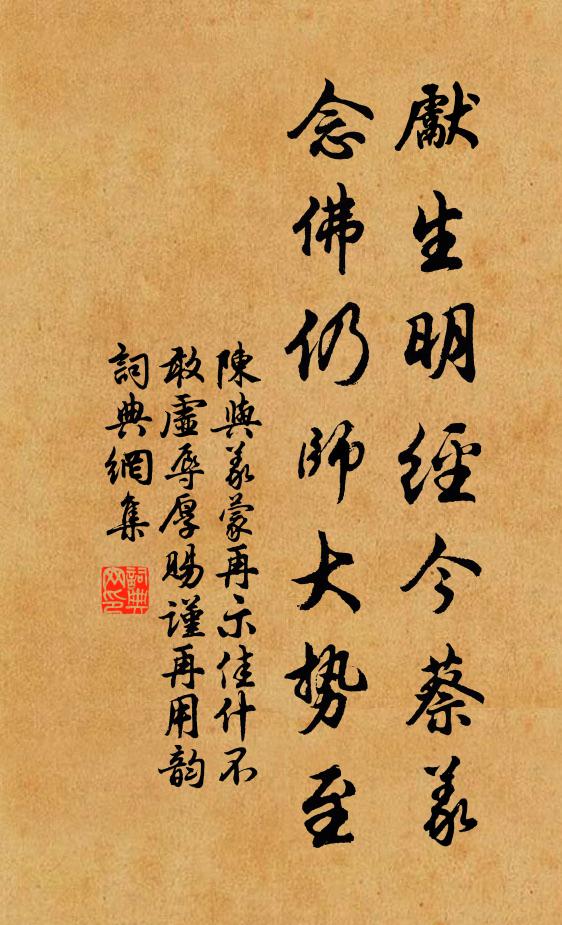 獻生明經今蔡義
念佛仍師大勢至
陳與義蒙再示佳什不
敢虛辱厚賜謹再用韵
詞典網集
詞典
网印